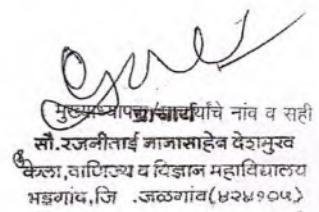 मुख्याध्यापक/प्राचार्यांचे नांव व सही
सौ.रजनीताई नानासाहेब देशमुख
कला,वाणिज्य व विज्ञान महाविद्यालय
भडगांव,जि .जळगांव(४२४१०५)